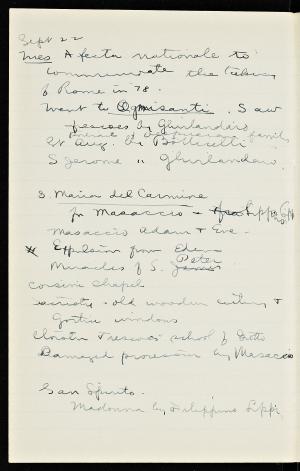 Sept 22
Mes A festa nationale to
commemorate the taking
of Rome in 78.
Went to Ognisanti. Saw
frescoes by Ghirlandaio
Portrait of Vespuccian family
St Aug. by Botticelli
S Jerome " Ghirlandaio.
S. Maria del Carmine
for Masaccio + Lippi
Masaccio Adam & Eve -
* Expulsion from Eden
Miracles of S. Peter
Corsini Chapel
sacristy - old wooden ceiling &
Gothic windows
Cloister Frescoes school of Giotto
Damaged procession by Masaccio
San Spirito.
Madonna by Filippino Lippi